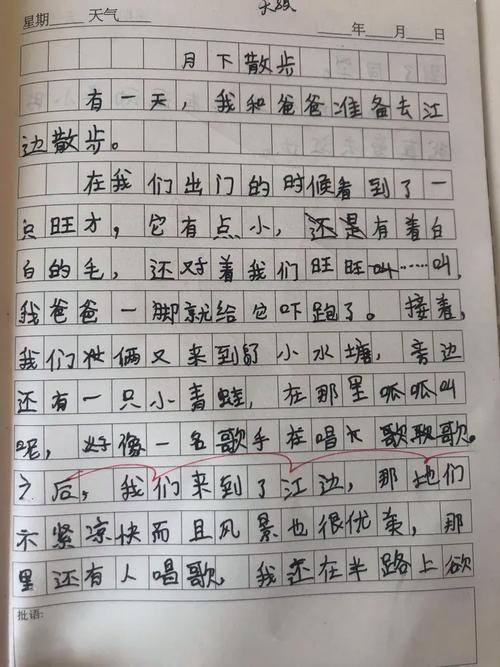 星期 天气 年 月 日
月下散步
有一天，我和爸爸准备去江
边散步。
在我们出门的时候看到了一
只旺才，它有点小，还是有着白
白的毛，还对着我们旺旺叫……叫，
我爸爸一脚就给它吓跑了。接着，
我们俩又来到了小水塘，旁边
还有一只小青蛙，在那里呱呱叫
呢，好像一名歌手在唱大歌歌歌。
之后，我们来到了江边，那他们
不紧凉快而且风景也很优美，那
里还有人唱歌，我还在半路上欲
批语: